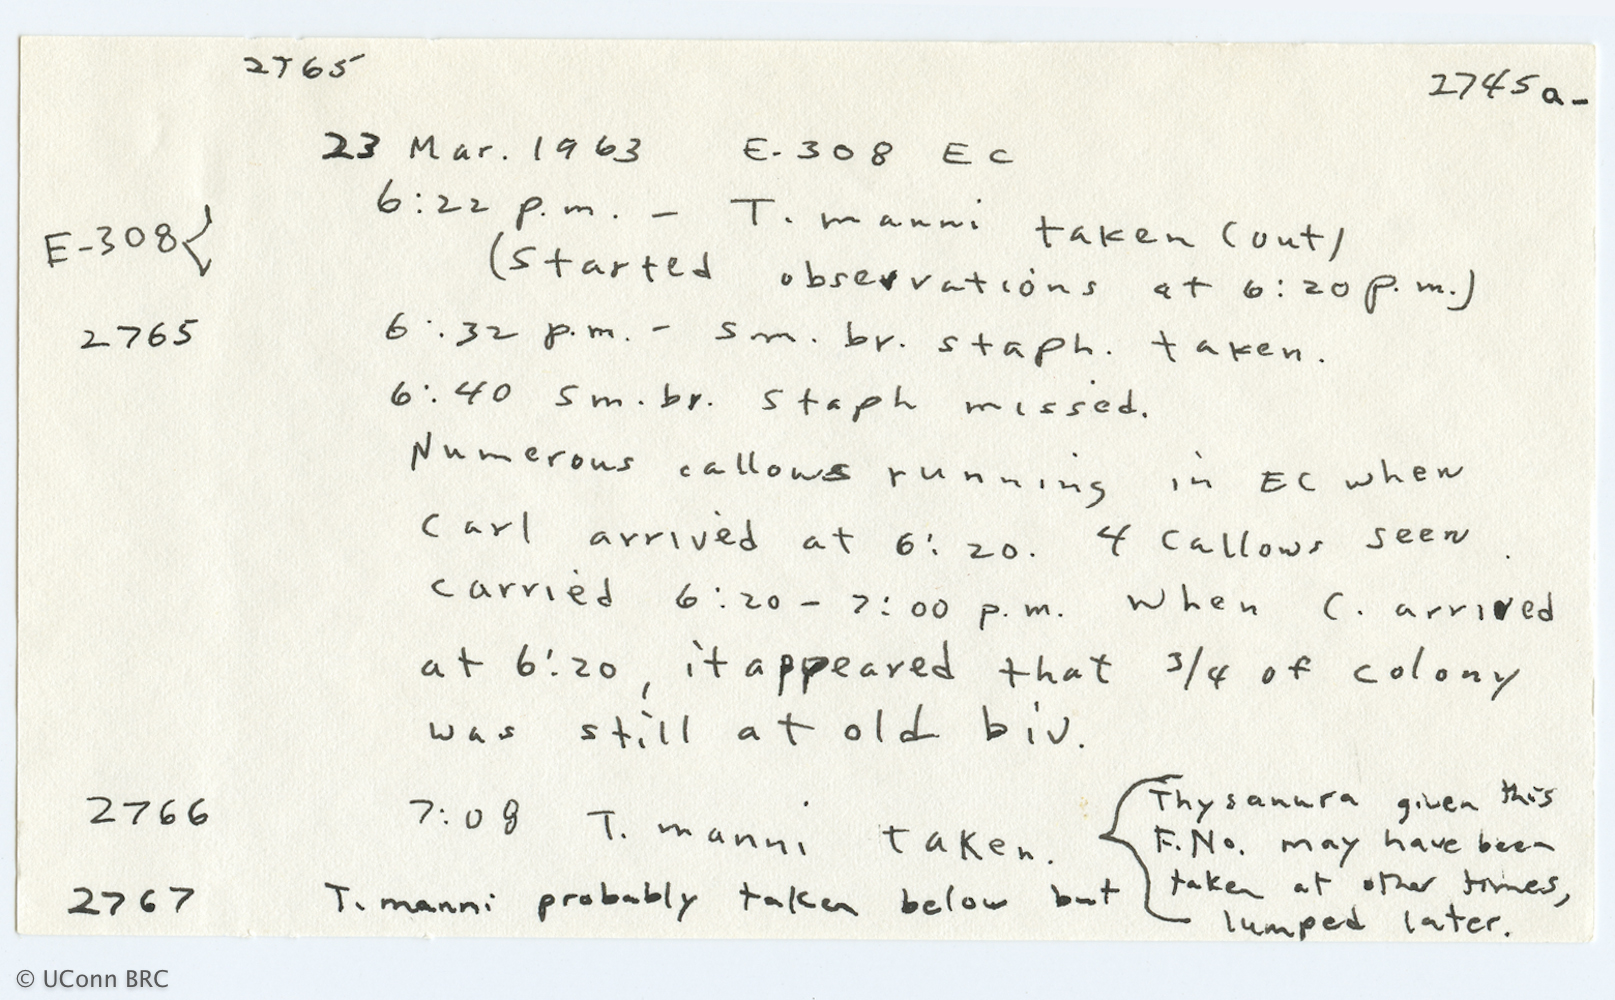 2765
2745a-
23 Mar. 1963 E-308 EC
6:22 p.m. - T. manni taken (out)
E-308 {
(Started observations at 6:20 p.m.)
2765 6:32 p.m. - sm. br. staph. taken.
6:40 sm. br. staph missed.
Numerous callows running in EC when
Carl arrived at 6:20. 4 callows seen
carried 6:20 - 7:00 p.m. When C. arrived
at 6:20, it appeared that 3/4 of colony
was still at old biv.
2766 7:08 T. manni taken.
2767 T. manni probably taken below but
{ Thysanura given this
F.No. may have been
taken at other times,
lumped later.
© UConn BRC